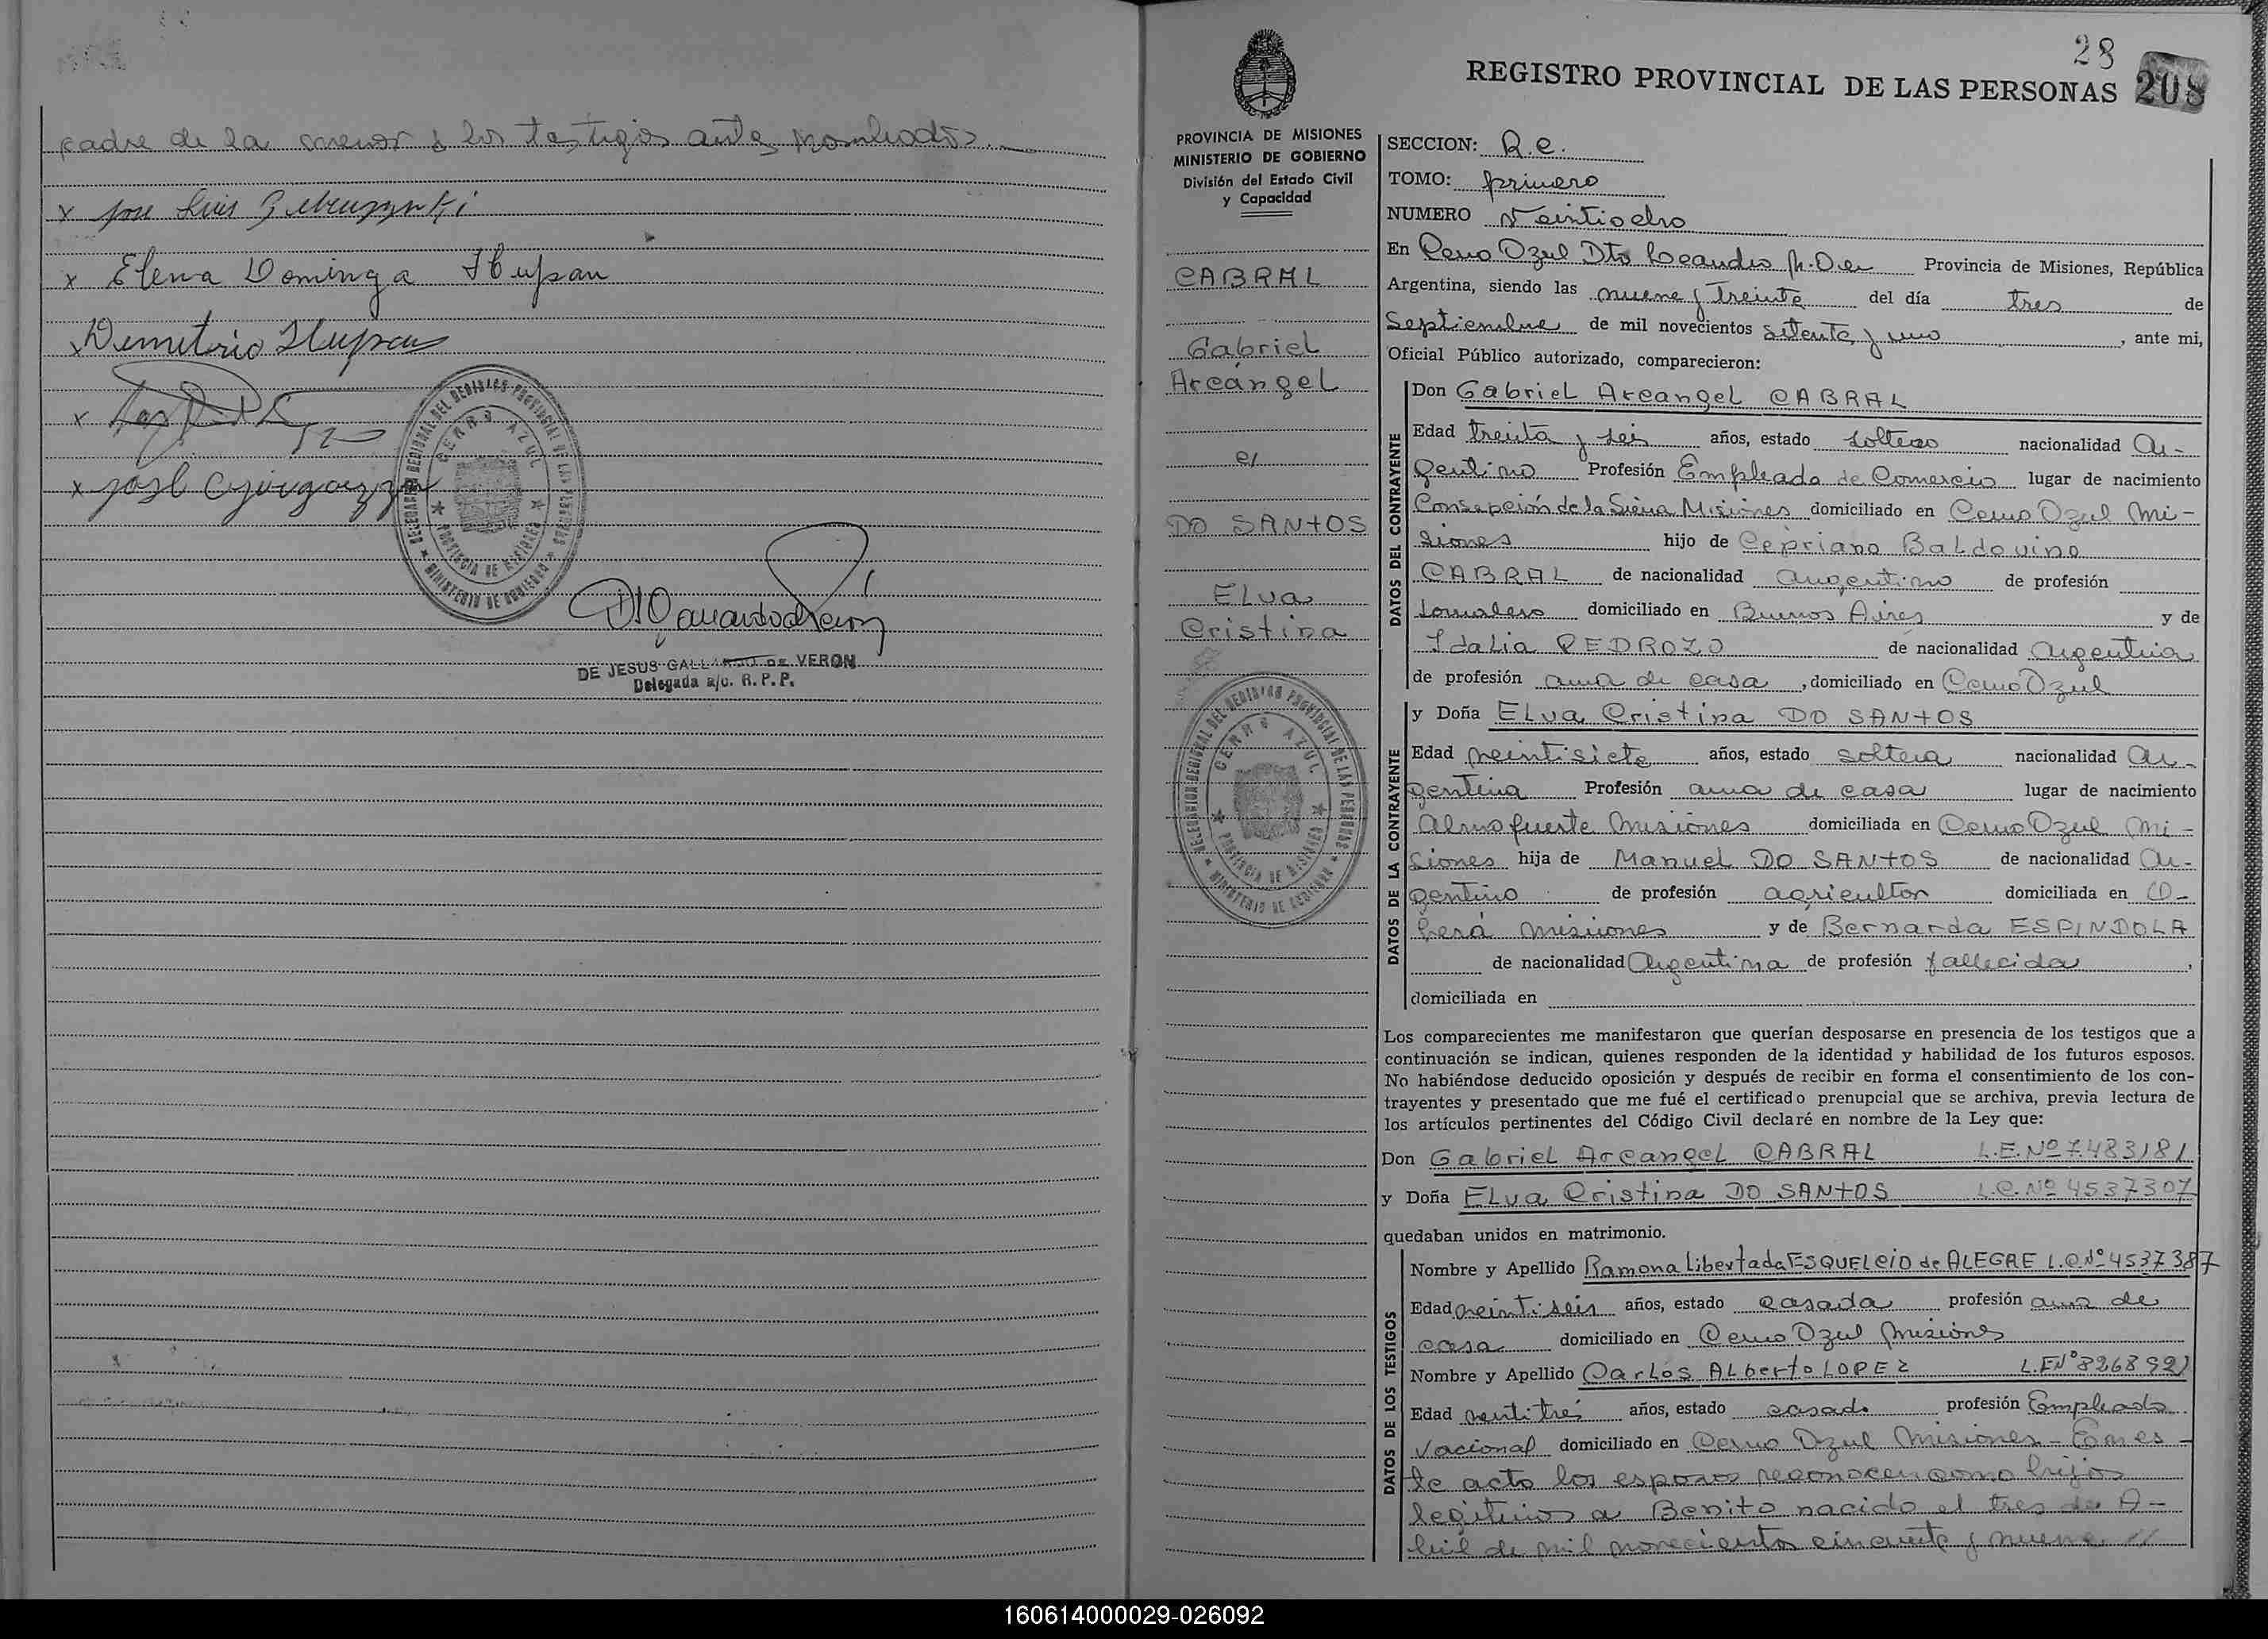 padre de la menor y los testigos antes nombrados.
x José Luis
x Elena Dominga
x Demetrio
x
x José
DELEGACION REGIONAL DEL REGISTRO PROVINCIAL DE LAS PERSONAS
CERRO AZUL
PROVINCIA DE MISIONES
MINISTERIO DE GOBIERNO
DE JESUS GALLARDO DE VERON
Delegada a/c. R. P. P.
28
REGISTRO PROVINCIAL DE LAS PERSONAS 208
PROVINCIA DE MISIONES
MINISTERIO DE GOBIERNO
División del Estado Civil
y Capacidad
CABRAL
Gabriel
Arcángel
c/
DO SANTOS
Elva
Cristina
DELEGACION REGIONAL DEL REGISTRO PROVINCIAL DE LAS PERSONAS
CERRO AZUL
PROVINCIA DE MISIONES
MINISTERIO DE GOBIERNO
SECCION: R.e.
TOMO: primero
NUMERO Veintiocho
En Cerro Azul Dto Leandro N. Alem Provincia de Misiones, República
Argentina, siendo las nueve y treinta del día tres de
Septiembre de mil novecientos setenta y uno, ante mi,
Oficial Público autorizado, comparecieron:
DATOS DEL CONTRAYENTE
Don Gabriel Arcangel CABRAL
Edad treinta y seis años, estado soltero nacionalidad Ar-
gentino Profesión Empleado de Comercio lugar de nacimiento
Consepción de la Sierra Misiones domiciliado en Cerro Azul Mi-
siones hijo de Cepriano Baldovino
CABRAL de nacionalidad argentino de profesión
Jornalero domiciliado en Buenos Aires y de
Idalia PEDROZO de nacionalidad Argentina
de profesión ama de casa, domiciliado en Cerro Azul
DATOS DE LA CONTRAYENTE
y Doña Elva Cristina DO SANTOS
Edad veintisiete años, estado soltera nacionalidad Ar-
gentina Profesión ama de casa lugar de nacimiento
Almafuerte Misiones domiciliada en Cerro Azul Mi-
siones hija de Manuel DO SANTOS de nacionalidad Ar-
gentino de profesión agricultor domiciliada en O-
berá Misiones y de Bernarda ESPINDOLA
de nacionalidad Argentina de profesión fallecida,
domiciliada en
Los comparecientes me manifestaron que querían desposarse en presencia de los testigos que a
continuación se indican, quienes responden de la identidad y habilidad de los futuros esposos.
No habiéndose deducido oposición y después de recibir en forma el consentimiento de los con-
trayentes y presentado que me fué el certificado prenupcial que se archiva, previa lectura de
los artículos pertinentes del Código Civil declaré en nombre de la Ley que:
Don Gabriel Arcangel CABRAL L.E. Nº 7.483181
y Doña Elva Cristina DO SANTOS L.C. Nº 4537307
quedaban unidos en matrimonio.
DATOS DE LOS TESTIGOS
Nombre y Apellido Ramona Libertada ESQUELCIO de ALEGRE L.C.Nº 4537387
Edad veintiseis años, estado casada profesión ama de
casa domiciliado en Cerro Azul Misiones
Nombre y Apellido Carlos Alberto LOPEZ L.E.Nº 8268992
Edad veintitres años, estado casado profesión Empleado
Nacional domiciliado en Cerro Azul Misiones - En es-
te acto los esposos reconocen como hijos
legitimos a Benito nacido el tres de A-
bril de mil novecientos cincuenta y nueve //
160614000029-026092